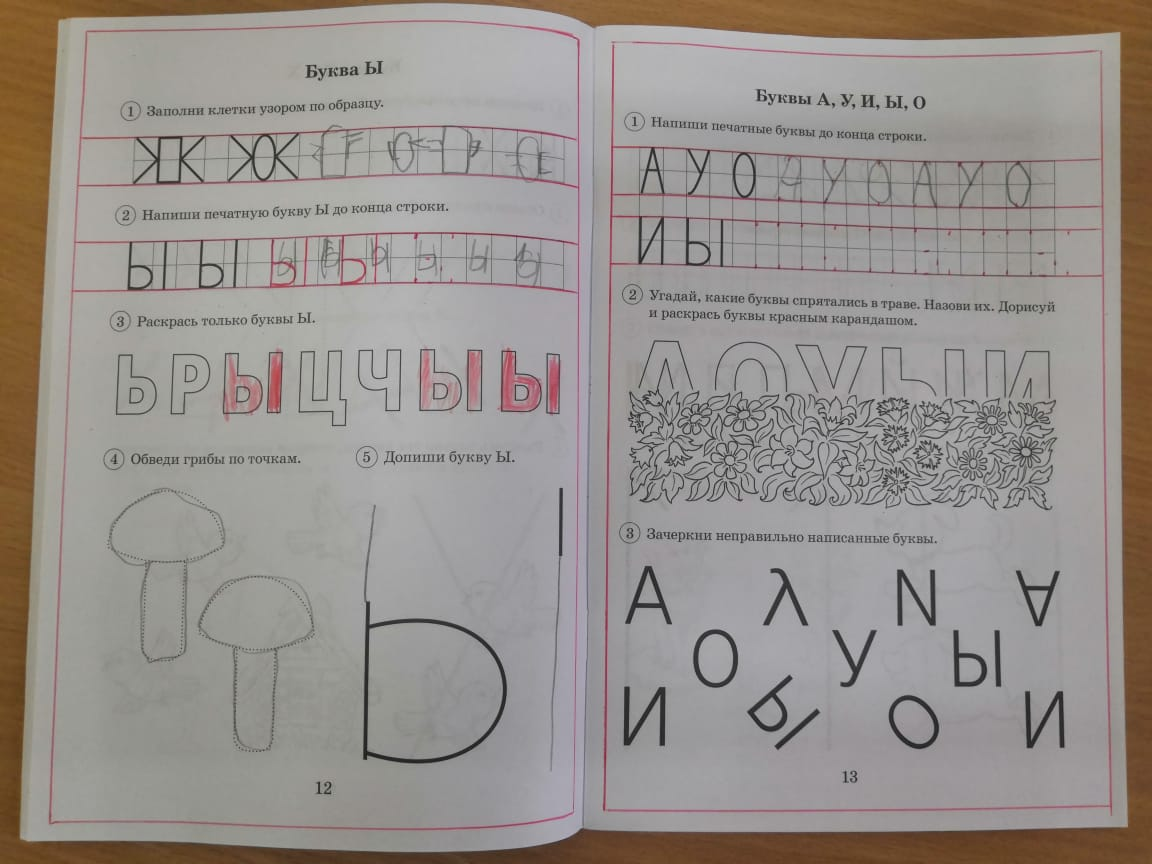 Буква Ы
1 Заполни клетки узором по образцу.
2 Напиши печатную букву Ы до конца строки.
Ы Ы Ы Ы Ы Ы Ы Ы
3 Раскрась только буквы Ы.
Ь Р Ы Ц Ч Ы Ы
4 Обведи грибы по точкам.
5 Допиши букву Ы.
Ы
12
Буквы А, У, И, Ы, О
1 Напиши печатные буквы до конца строки.
А У О У О А У О
И Ы
2 Угадай, какие буквы спрятались в траве. Назови их. Дорисуй
и раскрась буквы красным карандашом.
А О У Ы И
3 Зачеркни неправильно написанные буквы.
А У И А
О У Ы
И Ы О И
13